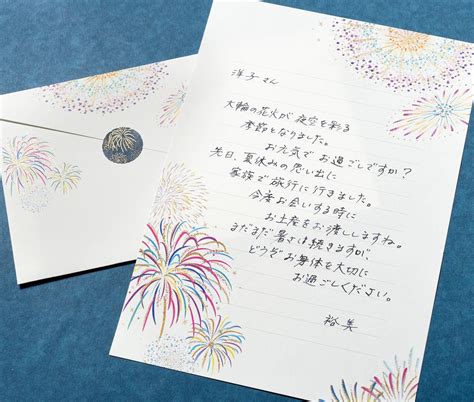 洋子さん
大輪の花火が 夜空を彩る
季節となりました。
お元気で お過ごしですか？
先日、夏休みの思い出に
家族で旅行に行きました。
今度お会いする時に
お土産をお渡ししますね。
まだまだ 暑さは続きますが、
どうぞ お身体を大切に
お過ごしください。
裕美